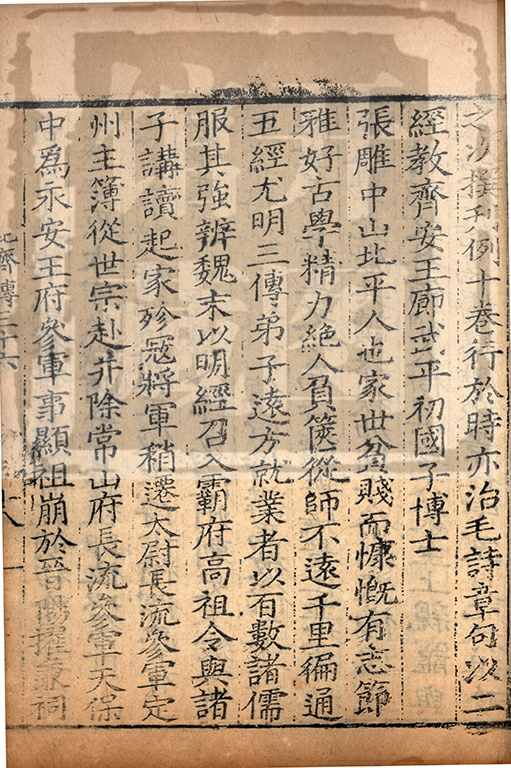 之次撰刋例十卷行於時亦治毛詩章句以二
經教齊安王廓武平初國子博士
張雕中山北平人也家世貧賤而慷慨有志節
雅好古學精力絶人負篋從師不遠千里徧通
五經尤明三傳弟子遠方就業者以百數諸儒
服其強辨魏末以明經召入霸府高祖令與諸
子講讀起家殄冦將軍稍遷太尉長流參軍定
州主簿從世宗赴并除常山府長流參軍天保
中為永安王府參軍事顯祖崩於晉陽擢兼祠
北齊傳三十六